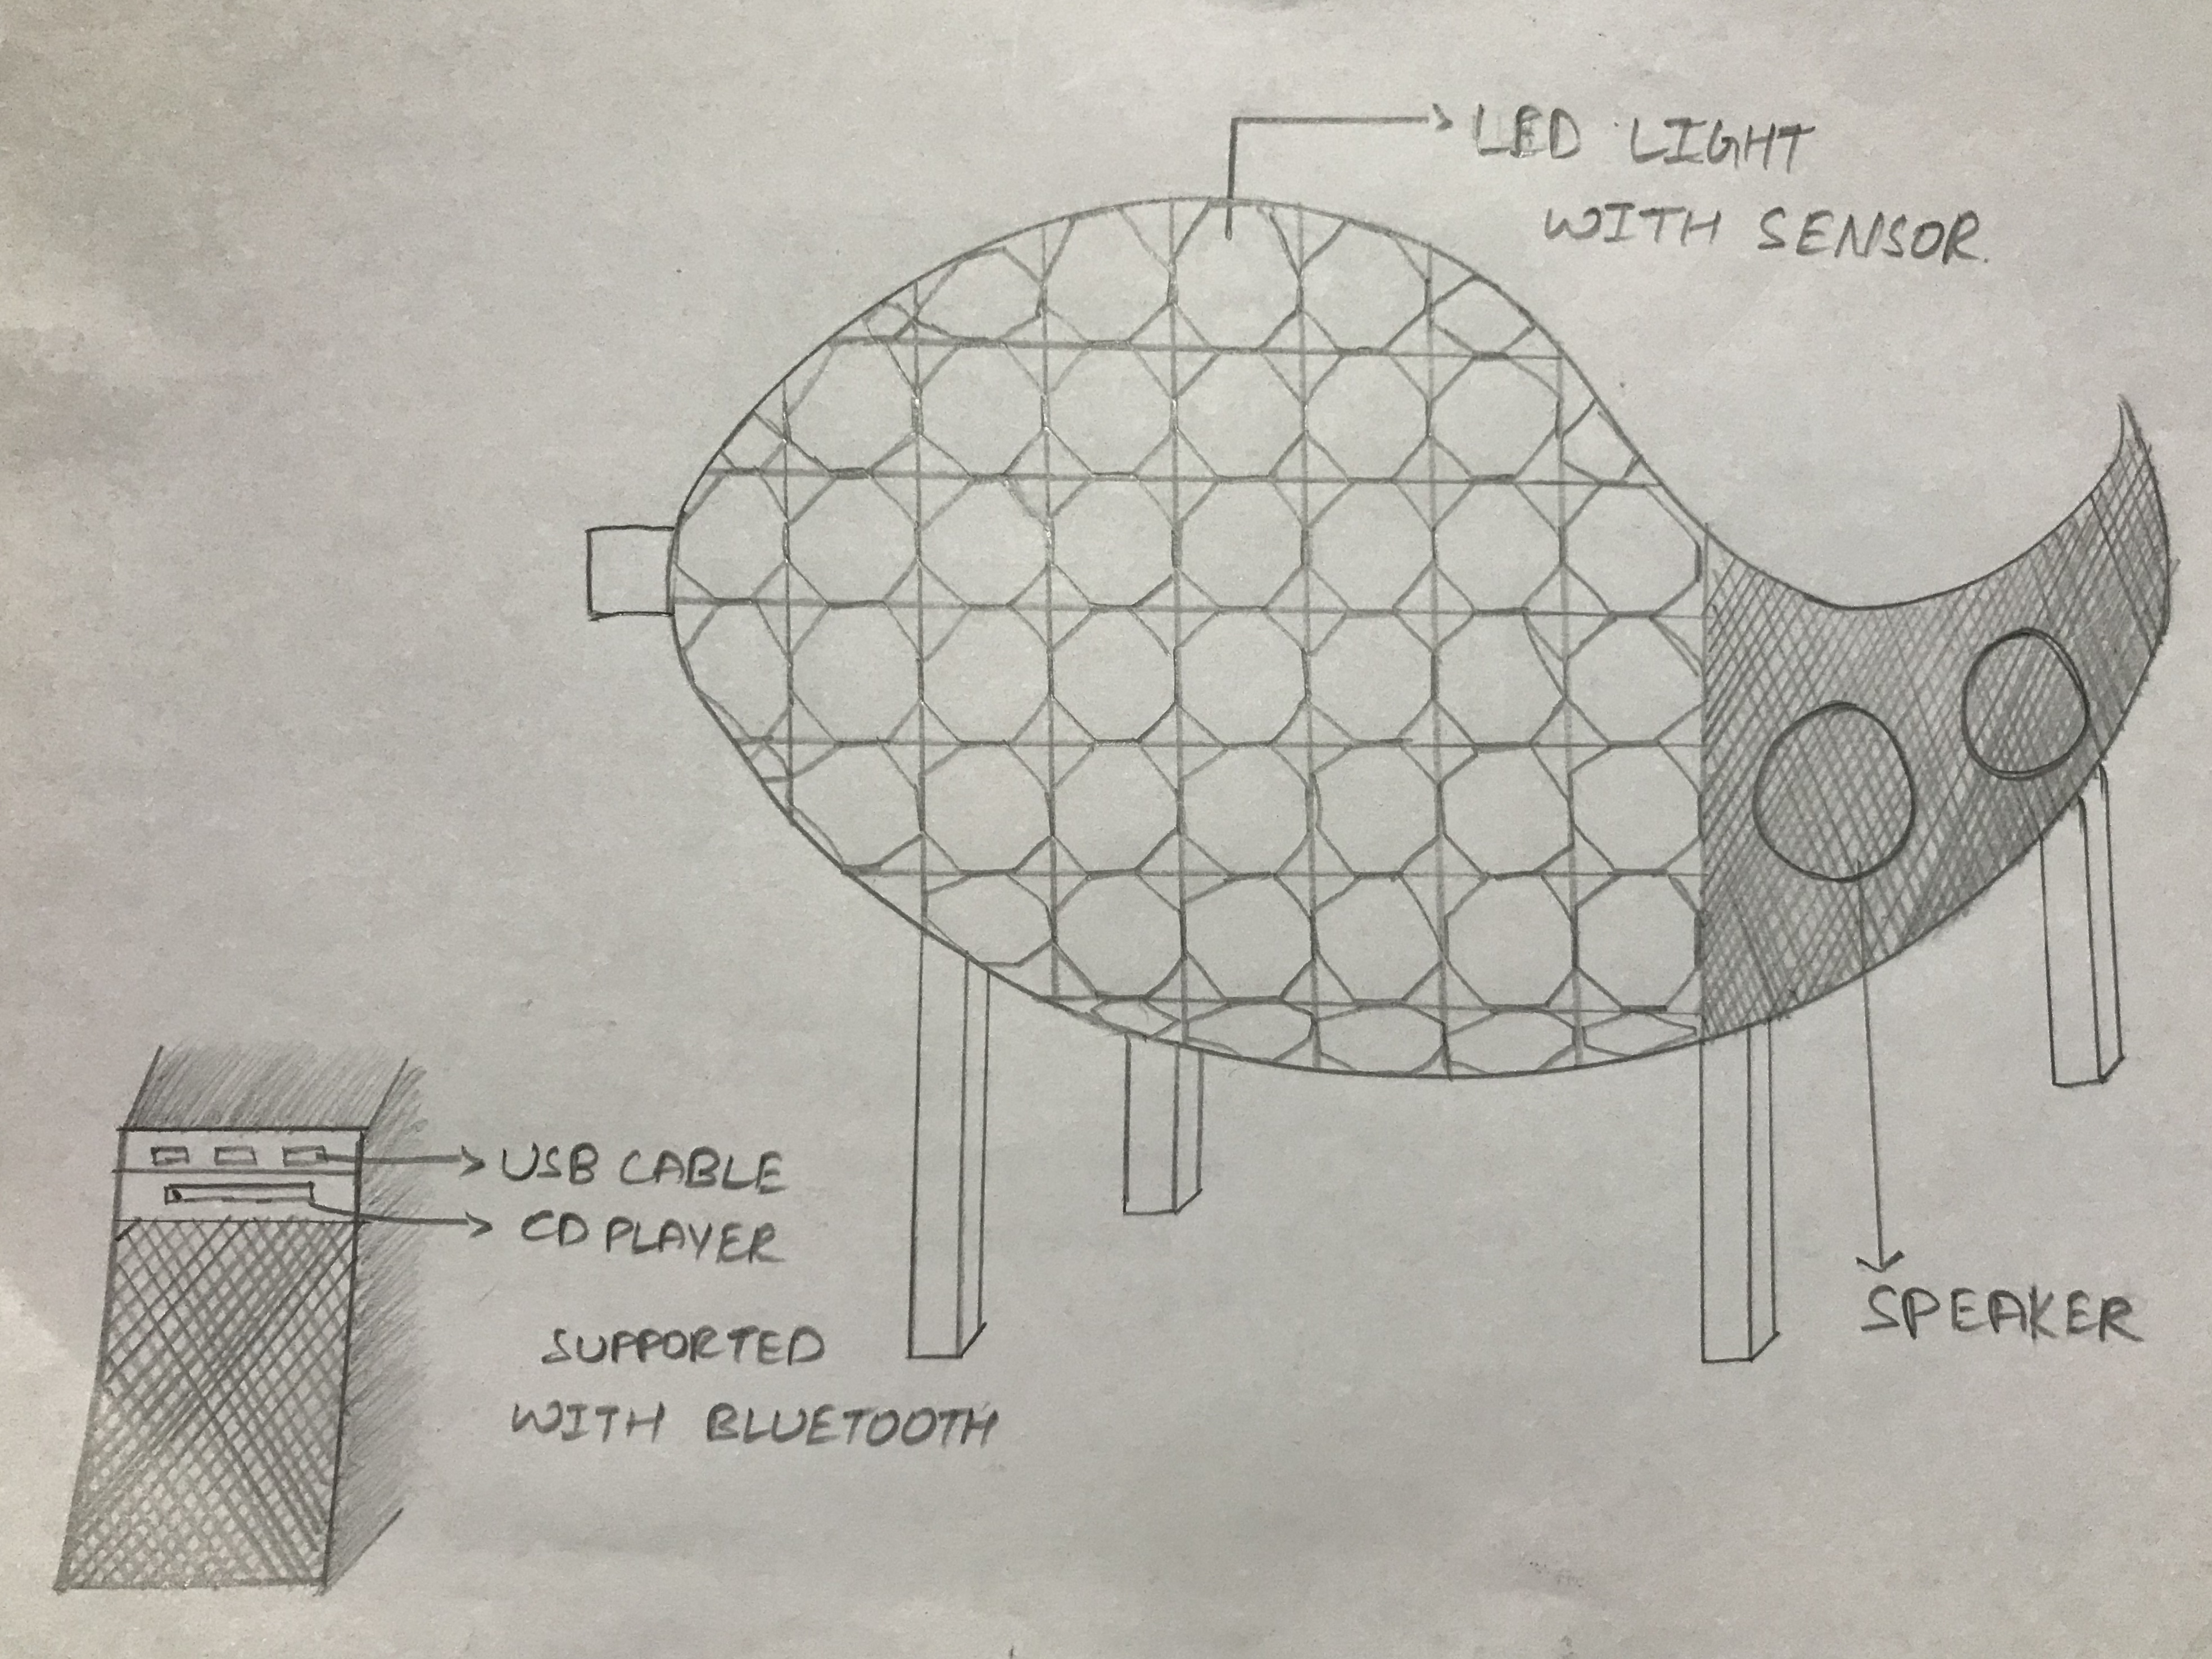 LED LIGHT
WITH SENSOR.
USB CABLE
CD PLAYER
SUPPORTED
WITH BLUETOOTH
SPEAKER